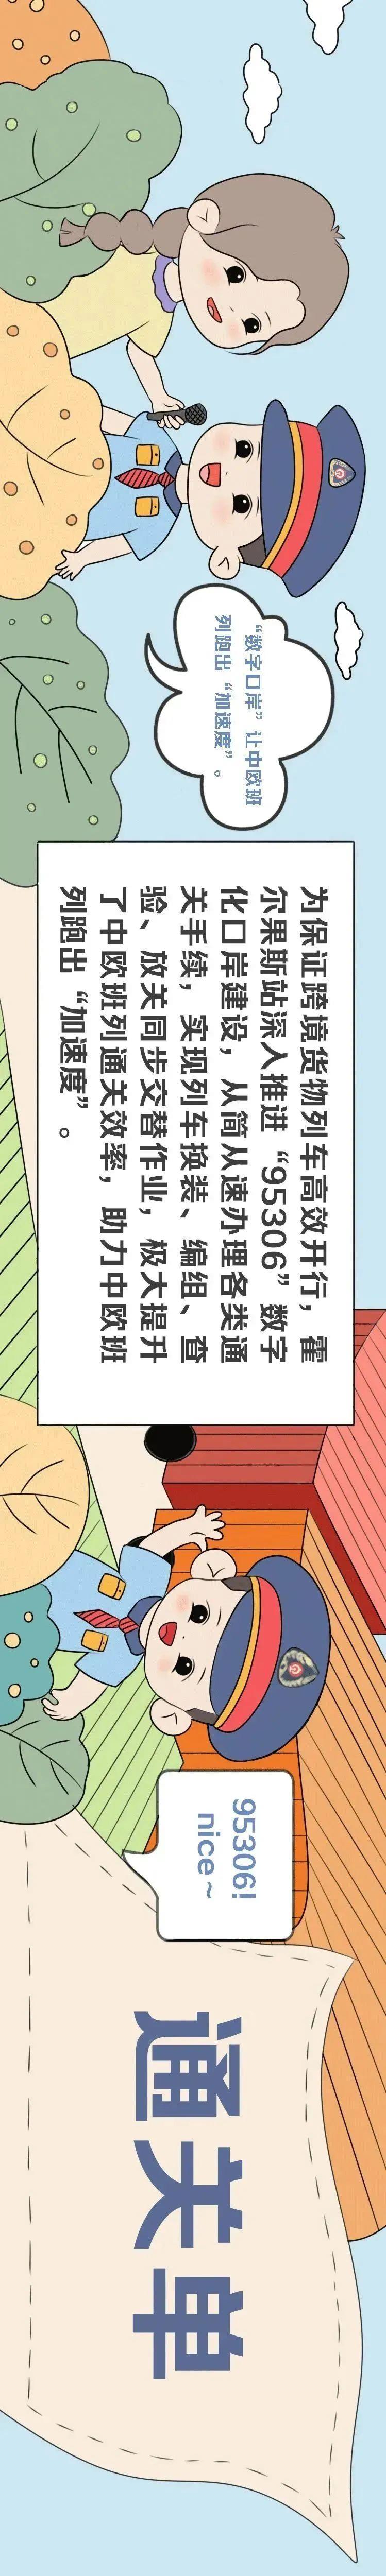 “数字口岸”让中欧班
列跑出“加速度”。
为保证跨境货物列车高效开行，霍
尔果斯站深入推进“95306”数字
化口岸建设，从简从速办理各类通
关手续，实现列车换装、编组、查
验、放关同步交替作业，极大提升
了中欧班列通关效率，助力中欧班
列跑出“加速度”。
95306!
nice~
通关单